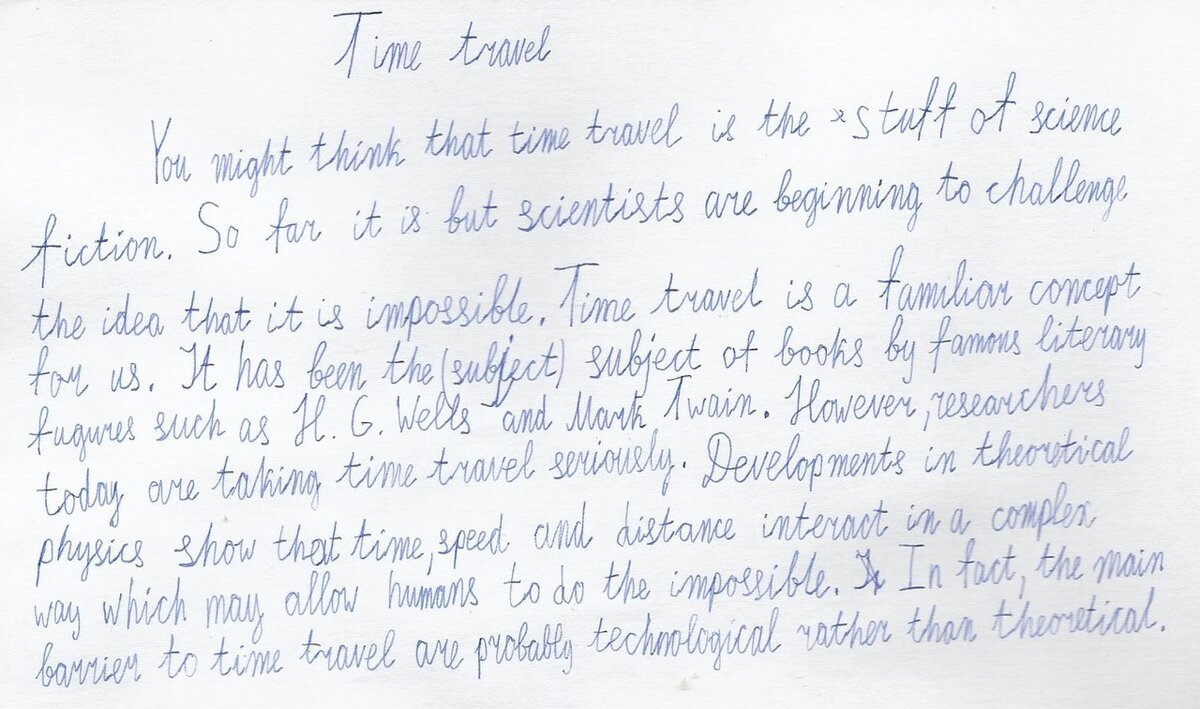 Time travel
You might think that time travel is the stuff of science
fiction. So far it is but scientists are beginning to challenge
the idea that it is impossible. Time travel is a familiar concept
for us. It has been the (subject) subject of books by famous literary
fugures such as H. G. Wells and Mark Twain. However, researchers
today are taking time travel seriously. Developments in theoretical
physics show that time, speed and distance interact in a complex
way which may allow humans to do the impossible. In fact, the main
barrier to time travel are probably technological rather than theoretical.